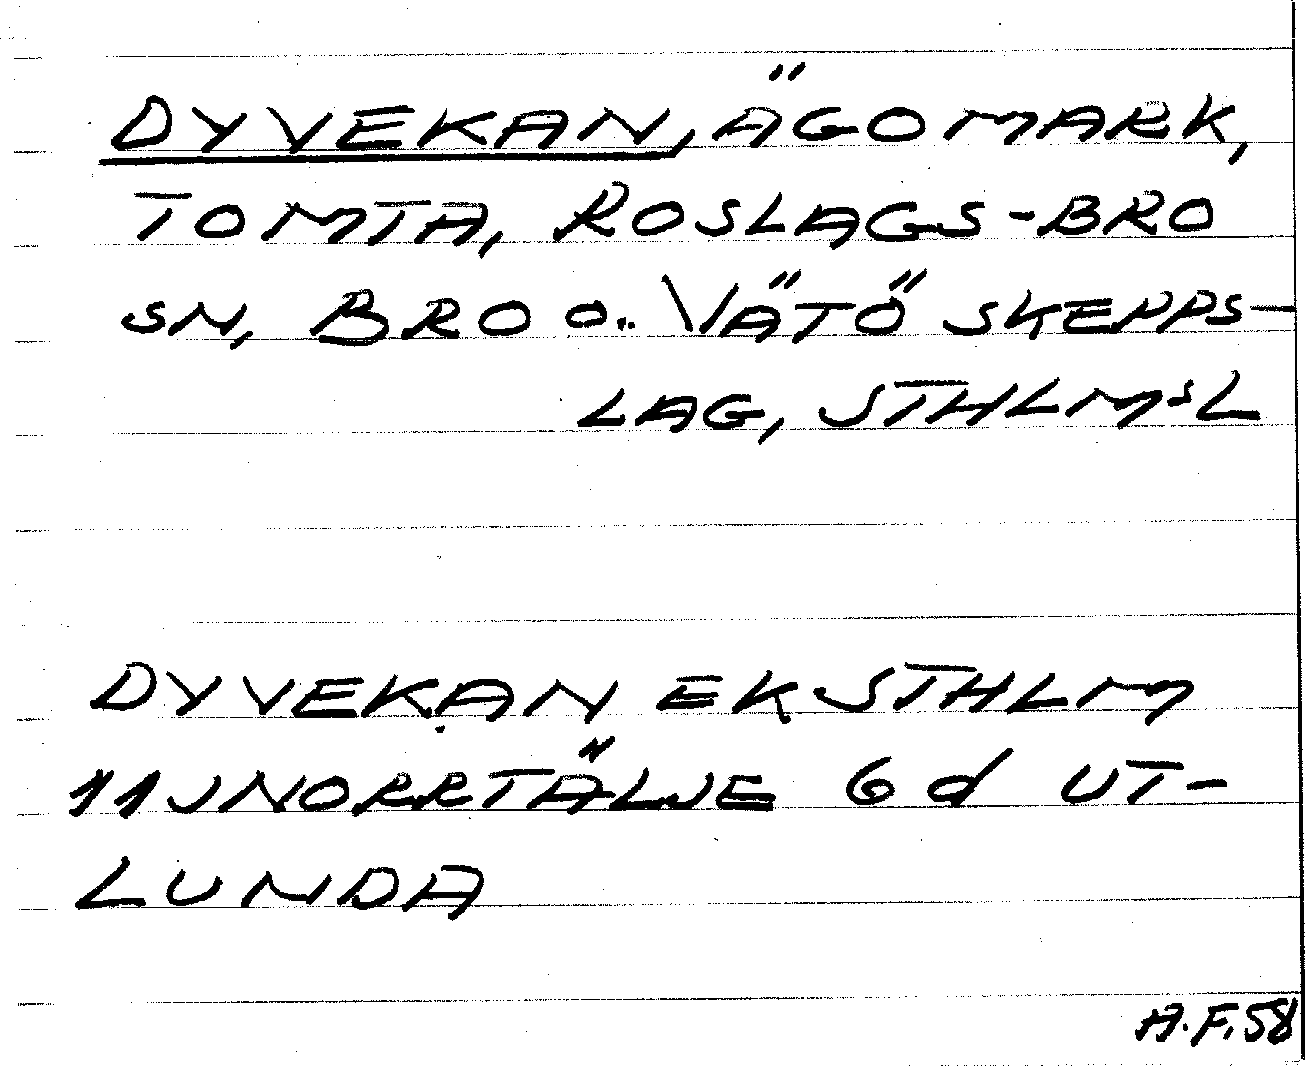 DYVEKAN, ÄGOMARK,
TOMTA, ROSLAGS-BRO
SN, BRO O. VÄTÖ SKEPPS-
LAG, STHLMSL
DYVEKAN EKSTHLM
11 JNORRTÄLJE 6 d UT-
LUNDA
A.F. 58